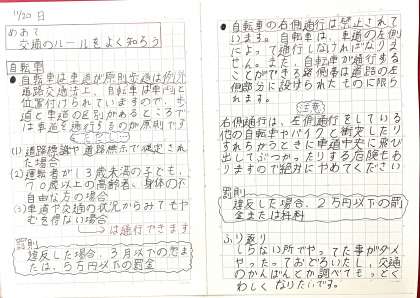 11/20日
めあて
交通のルールをよく知ろう
自転車
●自転車は車道が原則歩道は例外
道路交通法上、自転車は車両と
位置付けられていますので、歩
道と車道の区別があるところで
は車道を通行するのが原則です
(1)道路標識や道路標示で指定され
た場合
(2)運転者が13歳未満の子ども、
70歳以上の高齢者、身体の不
自由な方の場合
(3)車道や交通の状況からみてもや
むを得ない場合
→は通行できます
罰則
違反した場合、3月以下の懲ま
たは、5万円以下の罰金
●自転車の右側通行は禁止されて
います。自転車は、車道の左側
によって通行しなければなりま
せん。また、自転車が通行する
ことができる路側帯は道路の左
側部分に設けられたものに限ら
れます。
注意
右側通行は、左側通行をしている
他の自転車やバイクと衝突したり
すれちがうときに車道中央に飛び
出してぶつかったりする危険もあ
りますので絶対にやめてください
罰則
違反した場合、2万円以下の罰
金または科料
ふり返り
しらない所でやってた事がダメ
やったっておどろいたし、交通
のかんばんとか調べてもっとく
わしくなりたいです。